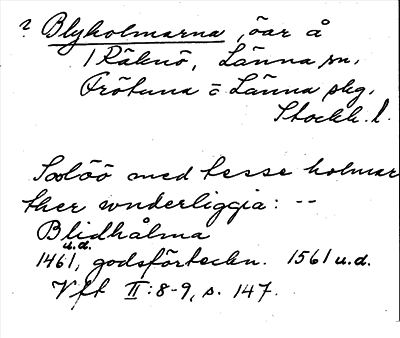 ? Blyholmarna, öar å
/ Räknö, Länna sn,
Frötuna o Länna skg,
Stockh. l.
Solöö med tesse holmar
ther vnderliggia: --
Blidhålma
u.d.
1461, godsförteckn. 1561 u.d.
Vft II:8-9, s. 147.